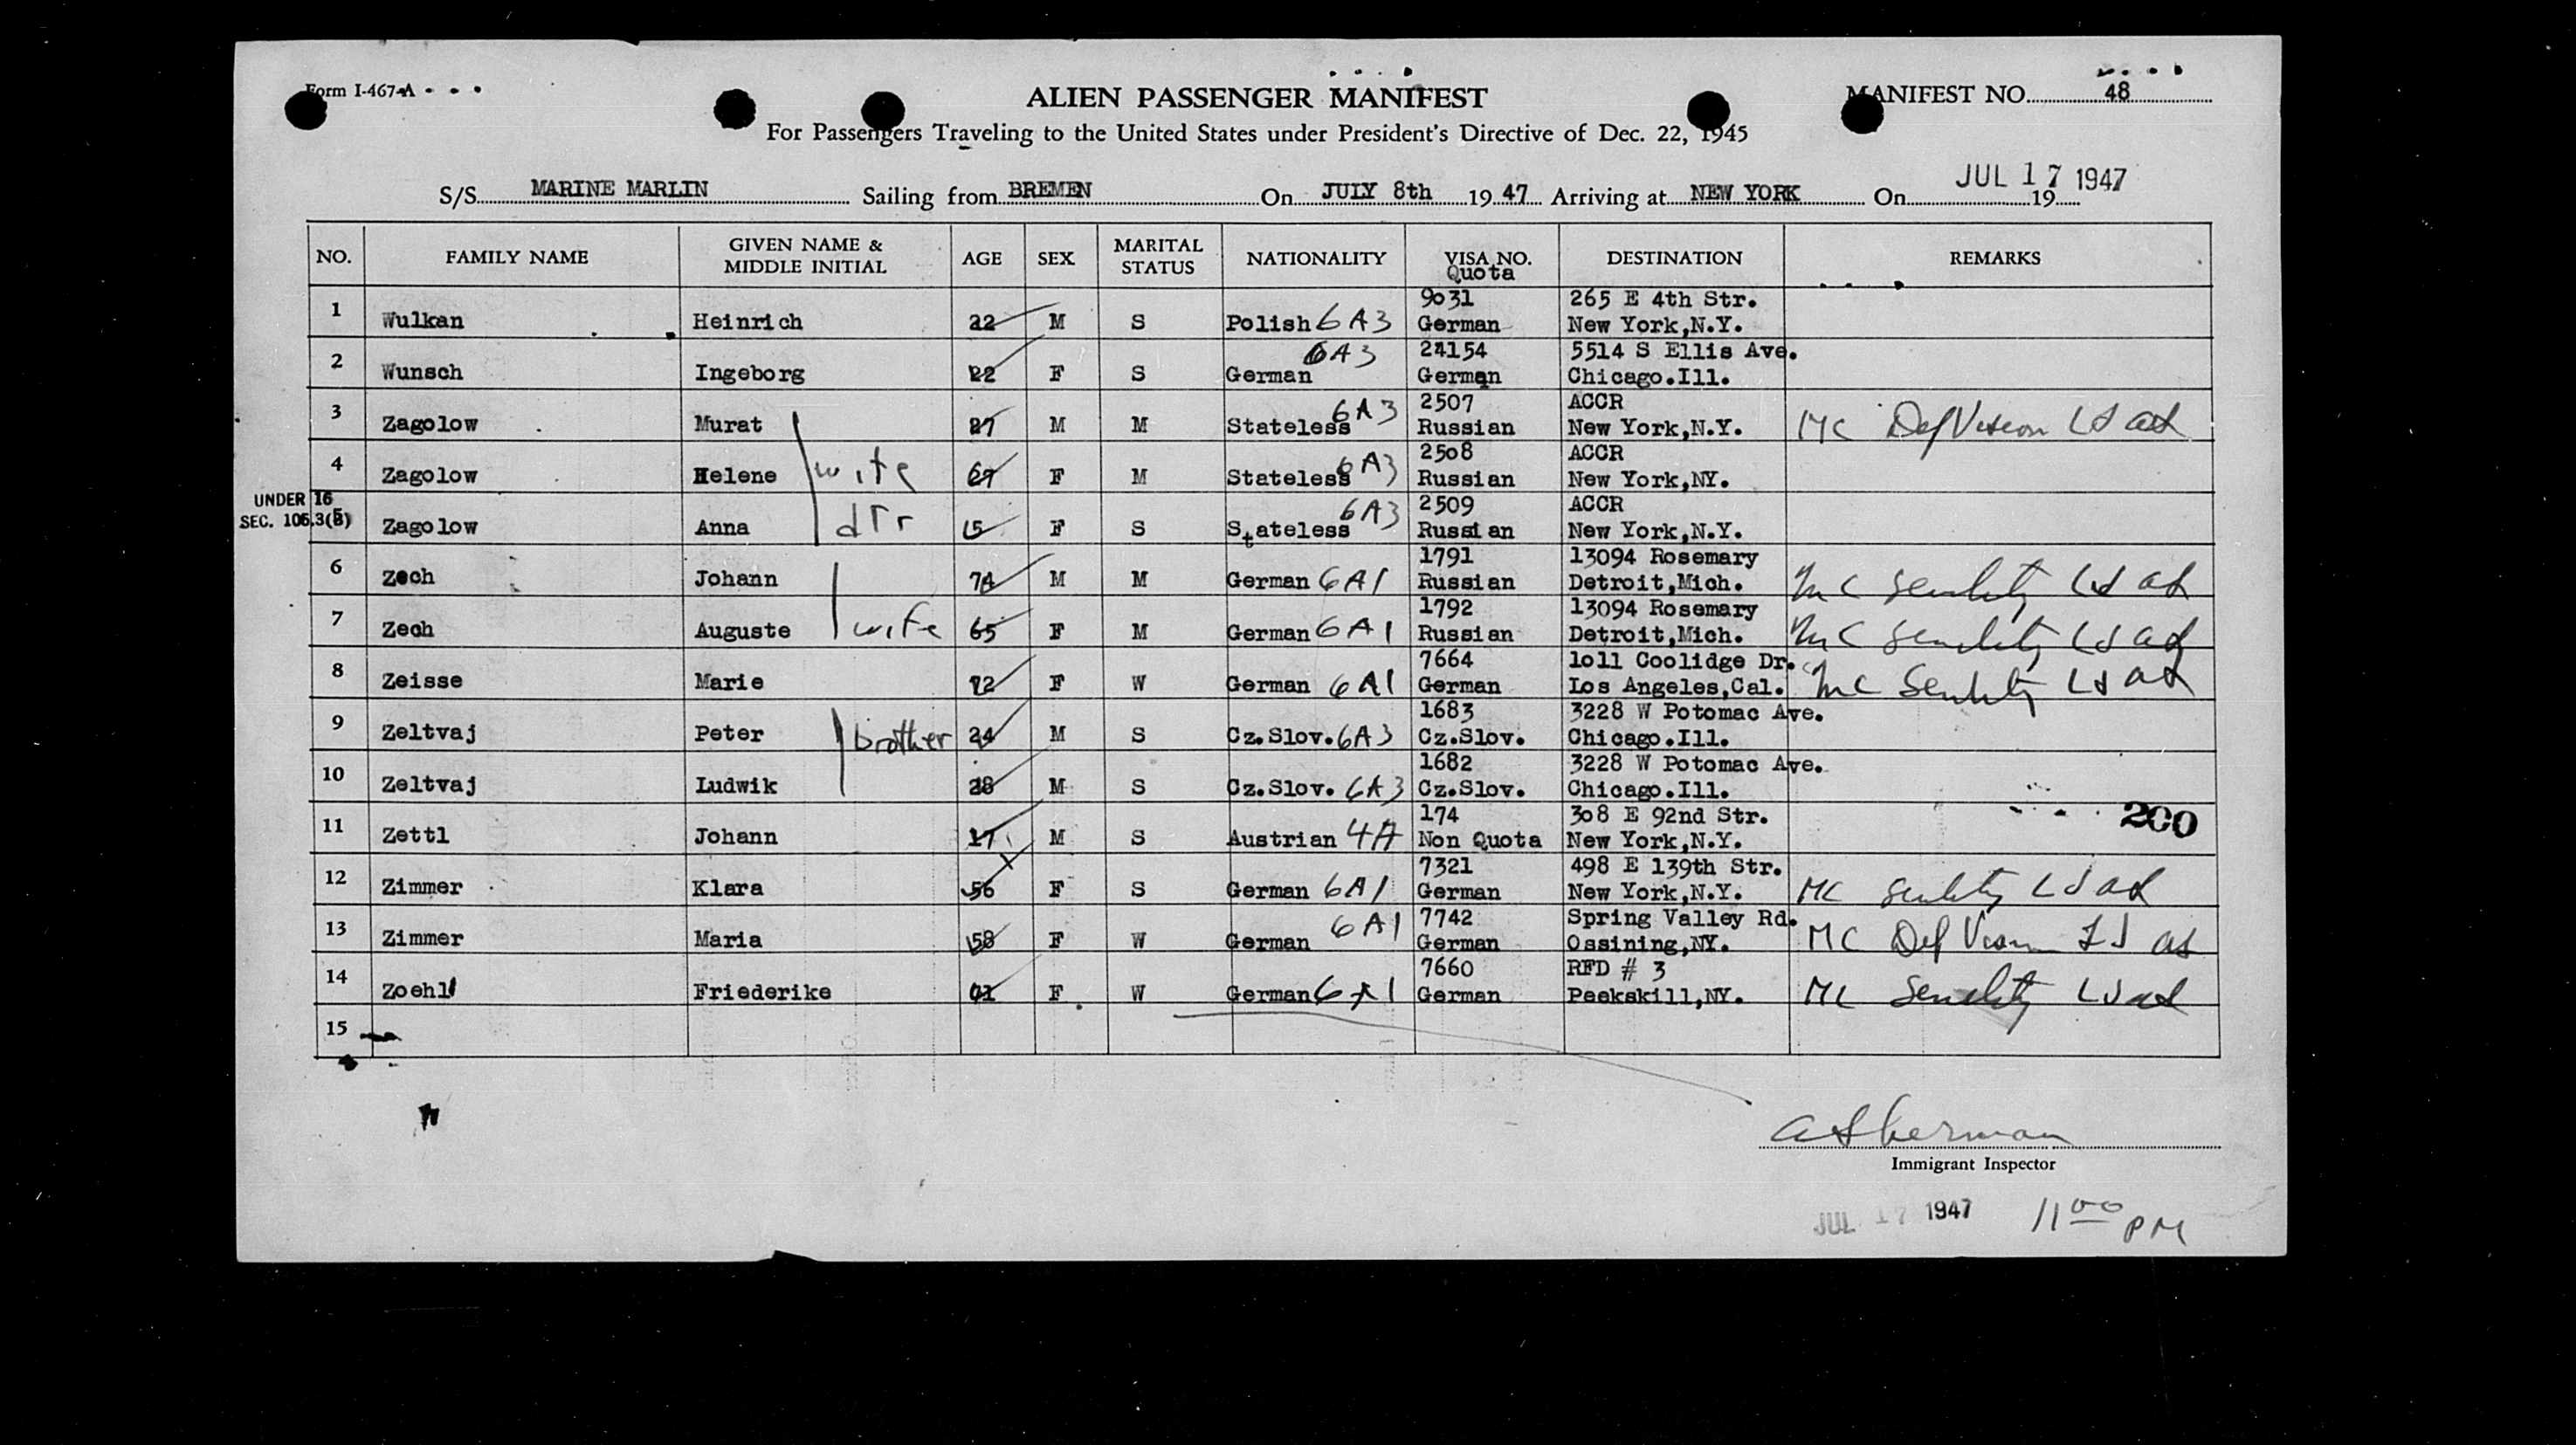 Form I-467-A
ALIEN PASSENGER MANIFEST
MANIFEST NO. 48
For Passengers Traveling to the United States under President's Directive of Dec. 22, 1945
S/S MARINE MARLIN Sailing from BREMEN On JULY 8th 19 47 Arriving at NEW YORK On JUL 17 1947 19
NO. FAMILY NAME GIVEN NAME & MIDDLE INITIAL AGE SEX MARITAL STATUS NATIONALITY VISA NO. Quota DESTINATION REMARKS
1 Wulkan Heinrich 22 M S Polish 6A3 9031 German 265 E 4th Str. New York,N.Y.
2 Wunsch Ingeborg 22 F S German 6A3 24154 German 5514 S Ellis Ave. Chicago.Ill.
3 Zagolow Murat M M Stateless 6A3 2507 Russian ACCR New York,N.Y. MC Def Vision
4 Zagolow Helene wife F M Stateless 6A3 2508 Russian ACCR New York,NY.
UNDER 16
SEC. 106.3(5)
5 Zagolow Anna dtr 15 F S Stateless 6A3 2509 Russian ACCR New York,N.Y.
6 Zech Johann 74 M M German 6A1 1791 Russian 13094 Rosemary Detroit,Mich. MC Senility
7 Zech Auguste wife 65 F M German 6A1 1792 Russian 13094 Rosemary Detroit,Mich. MC Senility
8 Zeisse Marie 72 F W German 6A1 7664 German 1o11 Coolidge Dr. Los Angeles,Cal. MC Senility
9 Zeltvaj Peter brother 24 M S Cz.Slov. 6A3 1683 Cz.Slov. 3228 W Potomac Ave. Chicago.Ill.
10 Zeltvaj Ludwik 28 M S Cz.Slov. 6A3 1682 Cz.Slov. 3228 W Potomac Ave. Chicago.Ill.
200
11 Zettl Johann 17 M S Austrian 4A 174 Non Quota 308 E 92nd Str. New York,N.Y.
12 Zimmer Klara 56 F S German 6A1 7321 German 498 E 139th Str. New York,N.Y. MC Senility
13 Zimmer Maria 58 F W German 6A1 7742 German Spring Valley Rd. Ossining,NY. MC Def Vision
14 Zoehl Friederike F W German 6A1 7660 German RFD # 3 Peekskill,NY. MC Senility
15
A Sherman
Immigrant Inspector
JUL 17 1947 11 00 PM